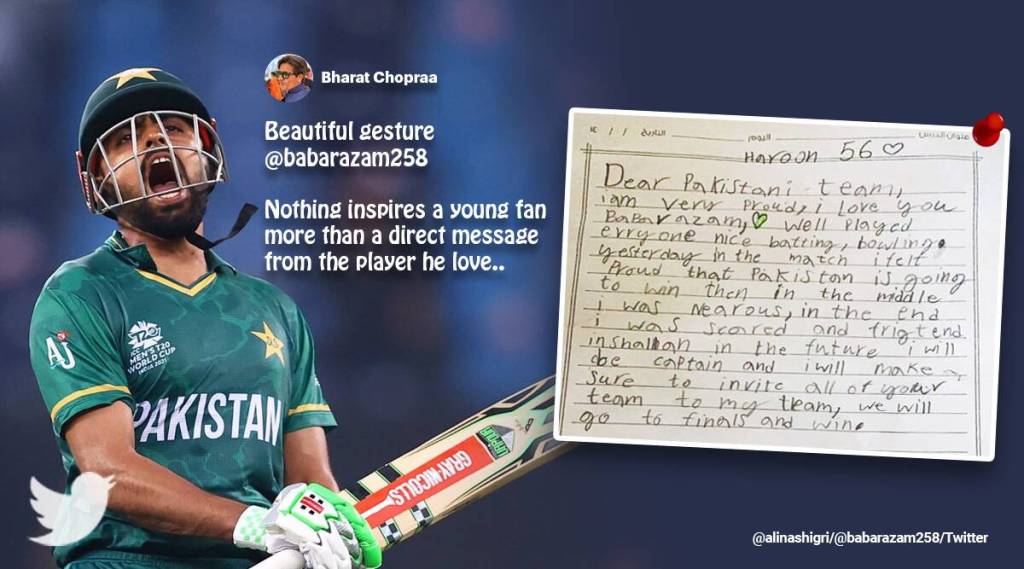 Bharat Chopraa
Beautiful gesture
@babarazam258
Nothing inspires a young fan
more than a direct message
from the player he love..
AJ
ICC
MEN'S T20
WORLD CUP
INDIA 2021
PAKISTAN
GRAY-NICOLLS
عنوان الدرس
اليوم
التاريخ / / ١٤
Haroon 56♡
Dear Pakistani team,
iam very Proud, i love you
BaBar azam,💚 well Played
erry one nice batting, bowling.
yesterday in the match ifelt
Proud that Pakistan is going
to win then in the middle
i was nearous, in the end
i was scared and frigtend
inshallah in the future i will
be captain and i will make
sure to invite all of your
team to my team, we will
go to finals and win.
@alinashigri/@babarazam258/Twitter